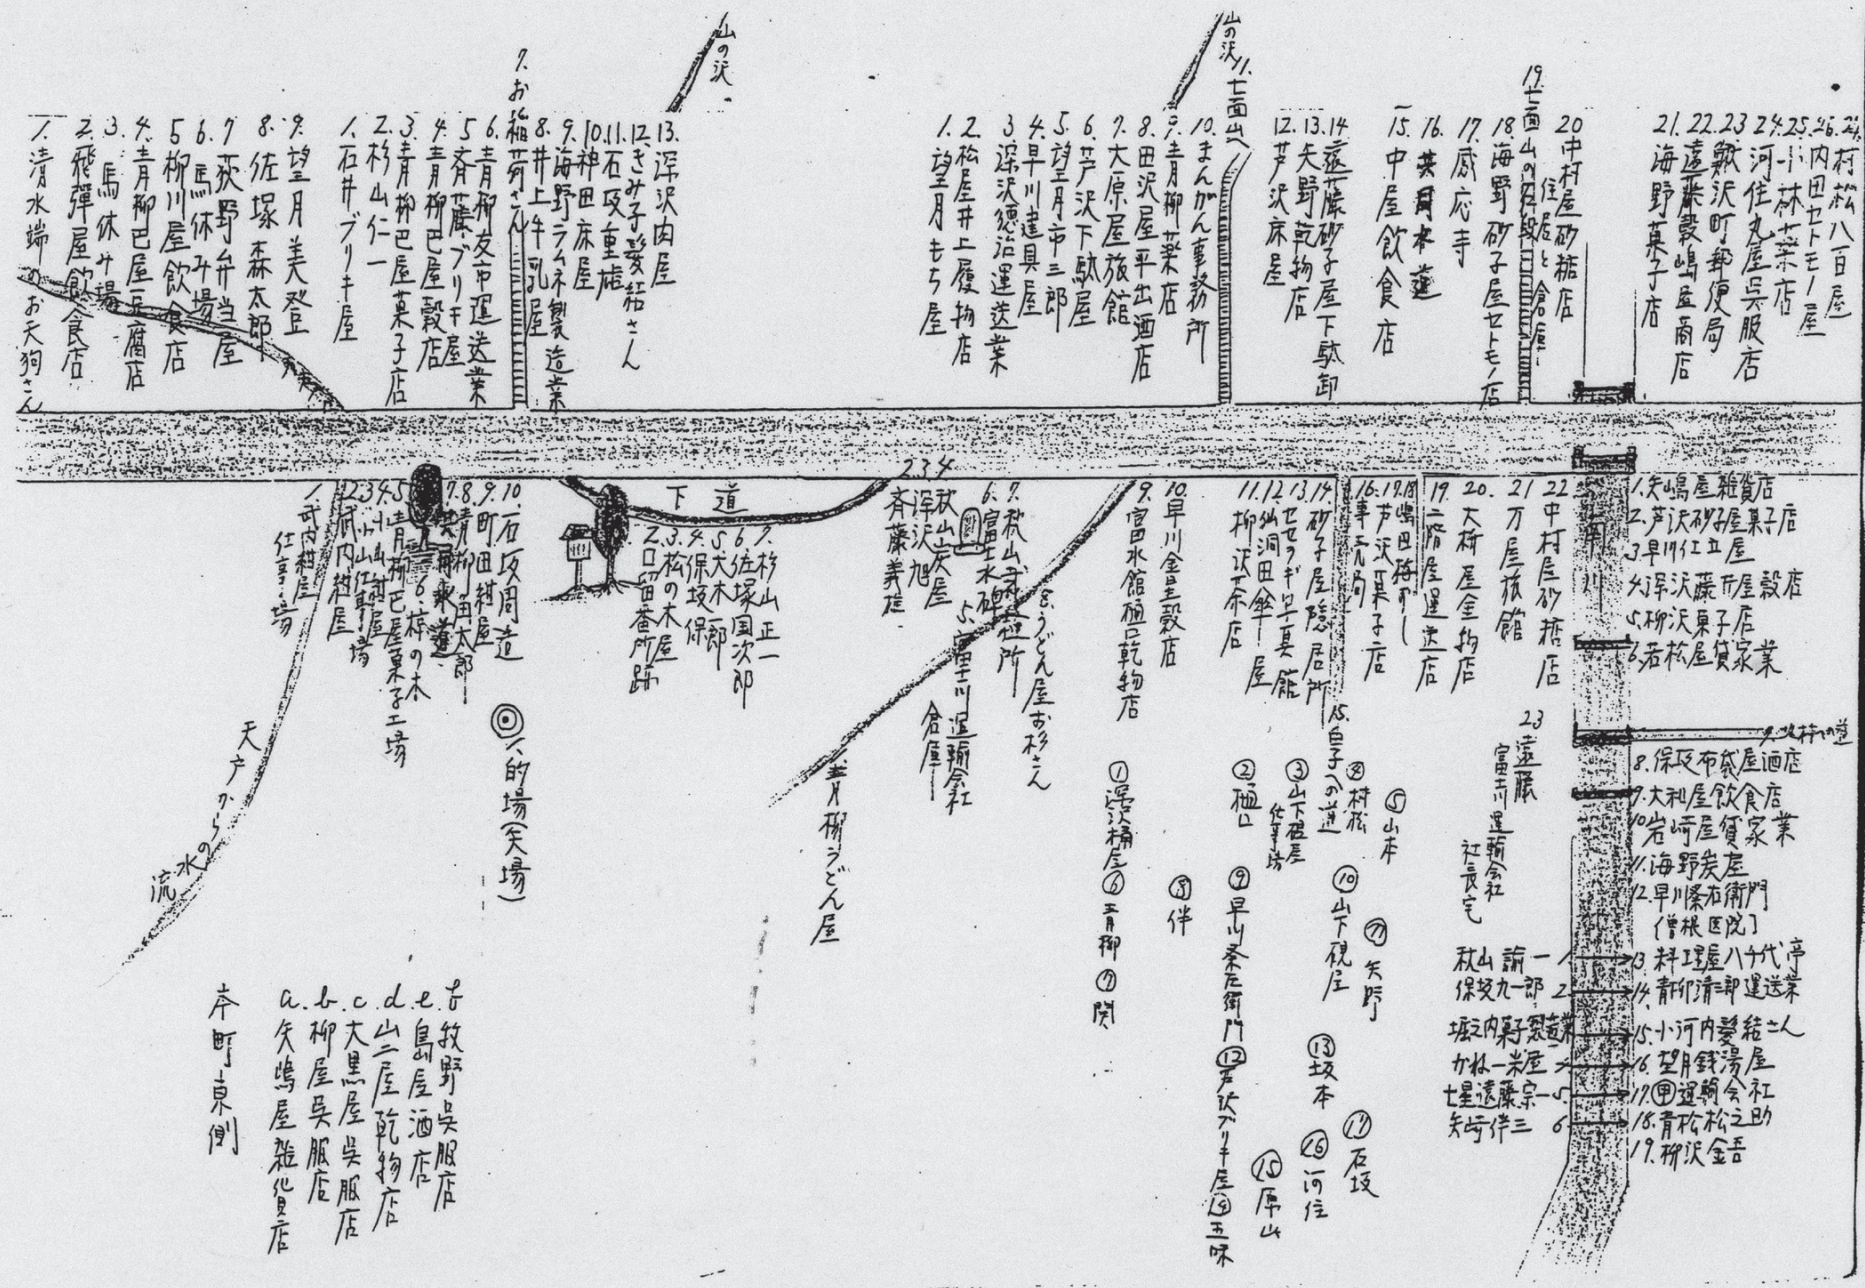 山の沢
山の沢
1.清水端のお天狗さん
2.飛彈屋飲食店
3.馬休み場
4.青柳巴屋豆腐店
5柳川屋飲食店
6.馬休み場
7荻野弁当屋
8.佐塚森太郎
9.望月美登
1.石井ブリキ屋
2.杉山仁一
3.青柳巴屋菓子店
4.青柳巴屋穀店
5斉藤ブリキ屋
6.青柳友市運送業
7.お稲荷さん
8.井上牛乳屋
9.海野ラムネ製造業
10.神田床屋
11.石坂重雄
12.きみ子髪結さん
13.深沢肉屋
1.望月もち屋
2.松屋井上履物店
3.深沢徳治運送業
4.早川建具屋
5.望月市三郎
6.芦沢下駄屋
7.大原屋旅館
8.田沢屋平出酒店
9.青柳薬店
10.まんがん事務所
11.七面山へ
12.芦沢床屋
13.矢野乾物店
14.遠藤砂子屋下駄卸
15.中屋飲食店
16.共同水道
17.感応寺
18.海野砂子屋セトモノ店
19.七面山の石段
20中村屋砂糖店
住居と倉庫
21.海野菓子店
22.遠藤穀嶋屋商店
23.鰍沢町郵便局
24.河住丸屋呉服店
25.小林薬店
26.内田セトモノ屋
村松八百屋
1.武内紺屋
仕事場
2.武内紺屋
3.小山仕事場
4.小山紺屋
5青柳巴屋菓子工場
6.椋の木
7.共同水道
8.青柳角太郎
9.町田紺屋
10.石坂周造
下道
口留番所跡
3.松の木屋
4.保坂保
5大木一郎
6.佐塚国次郎
7.杉山正一
2.3.4
斉藤義雄
深沢旭
秋山炭屋
5.富士川運輸会社
倉庫
6.富士水碑
うどん屋お杉さん
9.富水館樋口乾物店
10.早川金吾穀店
11.柳沢茶店
12.仙洞田傘屋
13.セセラギ写真館
14.砂子屋隠居所
15.白子への道
16.専売局
17.芦沢菓子店
19.二階屋運送店
20.大橋屋金物店
21万屋旅館
22中村屋砂糖店
23遠藤
富士川運輸会社
社長宅
1.矢嶋屋雑貨店
2.芦沢砂子屋菓子店
3.早川仕立屋
4.深沢藤升屋穀店
5.柳沢菓子店
6.若松屋貸家業
8.保坂布袋屋酒店
9.大和屋飲食店
10.岩崎屋貸家業
11.海野炭屋
12.早川条右衛門
(曽根医院)
13.料理屋八千代亭
14.青柳清三郎運送業
15.小河内髪結さん
16.望月銭湯屋
17.㊥運輸会社
18.青松松之助
19.柳沢金吾
秋山諭一 1.
保坂九一郎 2.
堀之内菓子製造業
かね一米屋
七星遠藤宗一 5.
矢崎伴三 6.
天戸からの
水の
流
◎ 的場(矢場)
青柳うどん屋
①深沢桶屋
②樋口
③山下硯屋
仕事場
④村松
⑤山本
⑥青柳
⑦関
⑧伴
⑨早川条左衛門
⑩山下硯屋
⑪矢野
⑫芦沢ブリキ屋
⑬坂本
⑭五味
⑮原山
⑯河住
⑰石坂
本町東側
a.矢嶋屋雑貨店
b.柳屋呉服店
c.大黒屋呉服店
d.山二屋乾物店
e.島屋酒店
f.牧野呉服店